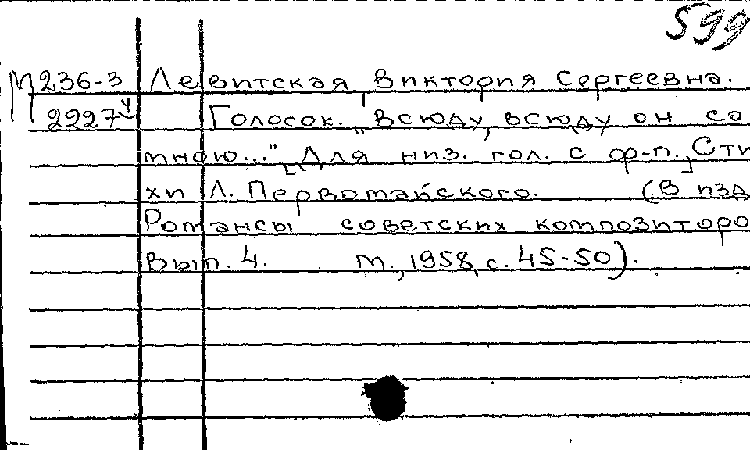 599
М236-3 Левитская Виктория Сергеевна.
2227 Голосок. "Всюду, всюду он со
мною..." [Для низ. гол. с ф-п.] Сти
хи Л. Первомайского. (В изд
Романсы советских композиторо
Вып. 4. М., 1958, с. 45-50).